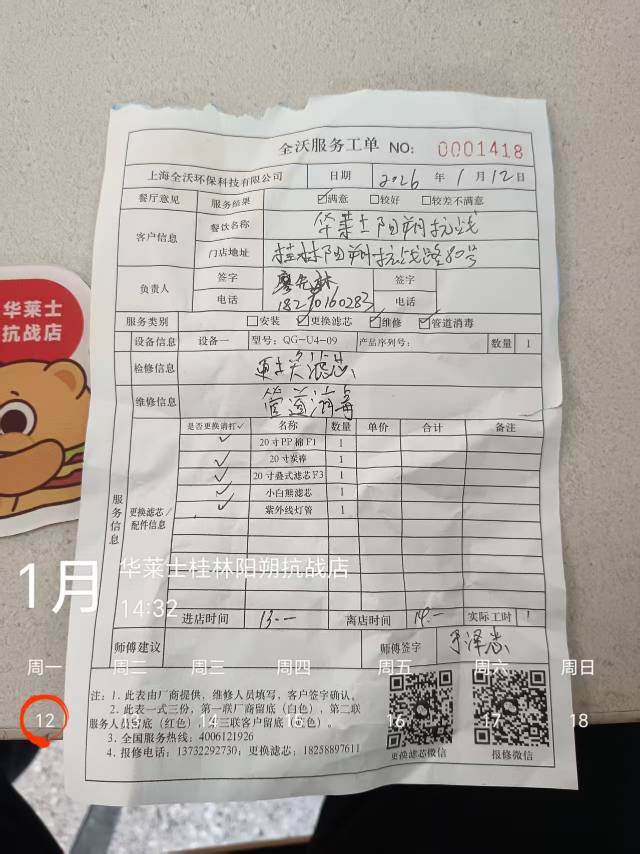 全沃服务工单 NO: 0001418
上海全沃环保科技有限公司 日期 2026 年 1 月 12 日
餐厅意见 服务结果 ☑满意 □较好 □较差不满意
客户信息 餐饮名称 华莱士阳朔抗战
门店地址 桂林阳朔抗战路80号
负责人 签字 签字
电话 18270160283 电话
服务类别 □安装 ☑更换滤芯 ☑维修 ☑管道消毒
设备信息 设备一 型号: QG-U4-09 产品序列号: 数量 1
检修信息 更换滤芯
维修信息 管道消毒
服务信息 更换滤芯/配件信息
是否更换请打✓ 名称 数量 单价 合计 备注
✓ 20寸PP棉F1 1
✓ 20寸炭棒 1
✓ 20寸叠式滤芯F3 1
✓ 小白熊滤芯 1
✓ 紫外线灯管 1
进店时间 13.-- 离店时间 14.-- 实际工时 1
师傅建议 师傅签字 于泽志
注: 1. 此表由厂商提供, 维修人员填写, 客户签字确认。
2. 此表一式三份, 第一联厂商留底 (白色), 第二联
服务人员留底 (红色), 第三联客户留底 (蓝色)。
3. 全国服务热线: 4006121926
4. 报修电话: 13732292730; 更换滤芯: 18258897611
更换滤芯微信 报修微信
华莱士
抗战店
1月
华莱士桂林阳朔抗战店
14:32
周一 周二 周三 周四 周五 周六 周日
12 13 14 15 16 17 18